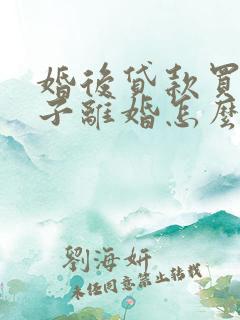 婚後貸款買
子離婚怎麼
劉海妍
未經同意禁止轉載